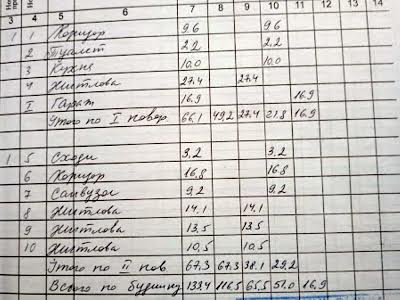 3 4 5 6 7 8 9 10 11 12 13 14
1 1 Коридор 9,6 9,6
2 Туалет 2,2 2,2
3 Кухня 10,0 10,0
4 Житлова 27,4 27,4
I Гараж 16,9 16,9
Утого по I повер. 66,1 49,2 27,4 21,8 16,9
1 5 Сходи 3,2 3,2
6 Коридор 16,8 16,8
7 Санвузол 9,2 9,2
8 Житлова 14,1 14,1
9 Житлова 13,5 13,5
10 Житлова 10,5 10,5
Утого по II пов. 67,3 67,3 38,1 29,2
Всего по будинку 133,4 116,5 65,5 51,0 16,9